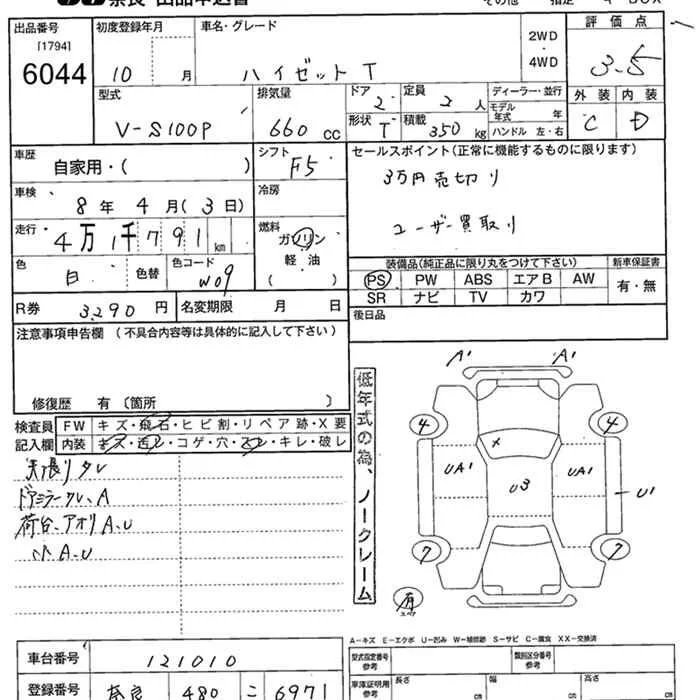 奈良 出品申込書
その他 指定
出品番号 初度登録年月 車名・グレード 評価点
[1794] 2WD
6044 10 月 ハイゼットT 4WD 3.5
型式 排気量 ドア 2 定員 2 人 ディーラー・並行 外装 内装
V-S100P 660 cc 形状 T 積載 350 kg モデル年式 年 C D
ハンドル 左・右
車歴 自家用・( ) シフト F5 セールスポイント(正常に機能するものに限ります)
車検 8 年 4 月 (3 日) 冷房 3万円売切り
走行 4万1千791 km 燃料 ガソリン ユーザー買取り
軽油
( )
色 白 色替 色コード W09 装備品(純正品に限り丸をつけて下さい) 新車保証書
PS PW ABS エアB AW 有・無
SR ナビ TV カワ
R券 3,290 円 名変期限 月 日 後日品
注意事項申告欄 (不具合内容等は具体的に記入して下さい)
修復歴 有 〔箇所 〕
検査員 FW キズ・飛石・ヒビ割・リペア跡・X要
記入欄 内装 キズ・汚レ・コゲ・穴・スレ・キレ・破レ
天張りタレ
ドアミラークレ、A
荷台、アオリA、U
小A、U
低年式の為、ノークレーム
A1 A1
4 4
UA1 U3 UA1 U1
7 7
有
スペア
A-キズ E-エクボ U-凹み W-補修跡 S-サビ C-腐食 XX-交換済
車台番号 121010 型式指定番号 参考 類別区分番号 参考
登録番号 奈良 480 こ 6971 車庫証明用 参考 長さ cm 幅 cm 高さ cm